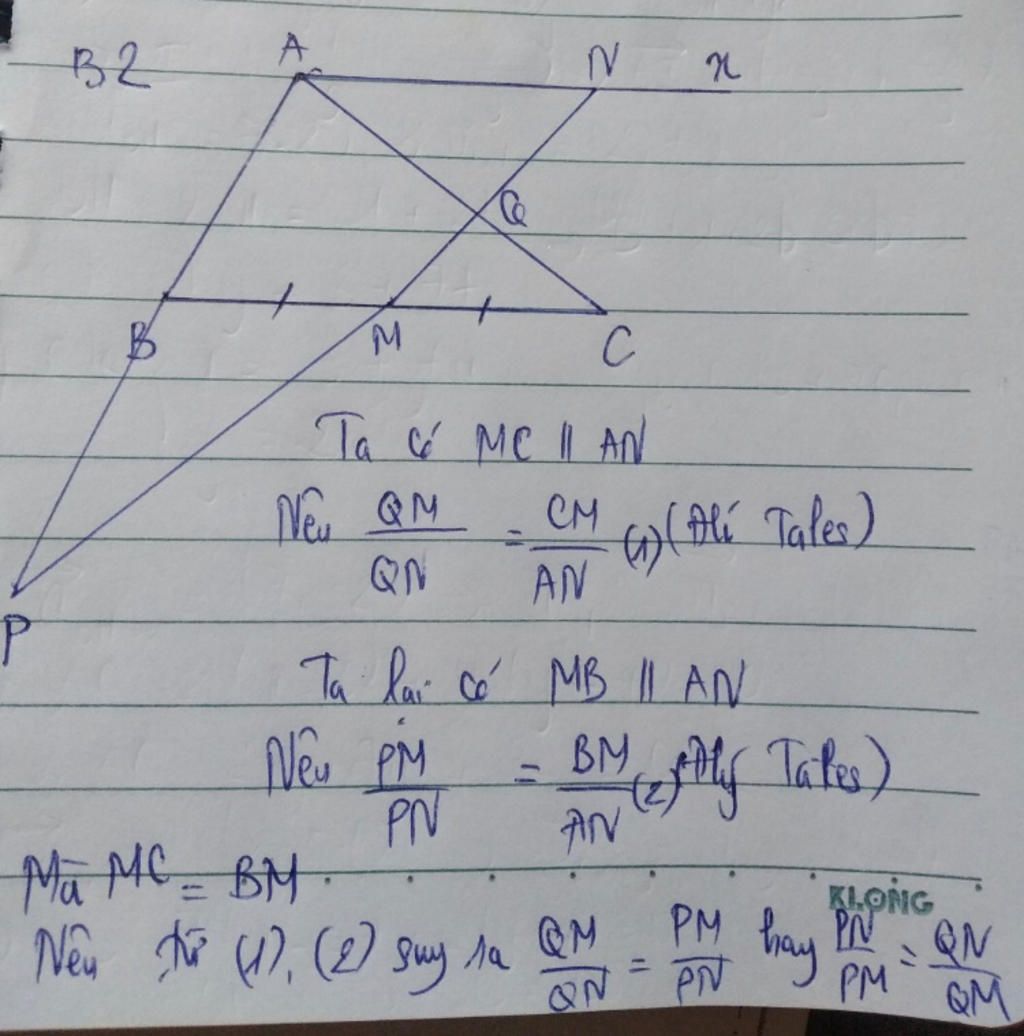 B2
A N x
Q
B M C
P
Ta có MC || AN
Nên QM/QN = CM/AN (1) (Đlí Tales)
Ta lại có MB || AN
Nên PM/PN = BM/AN (2) (Đlý Tales)
Mà MC = BM
KLONG
Nên từ (1), (2) suy ra QM/QN = PM/PN hay PN/PM = QN/QM